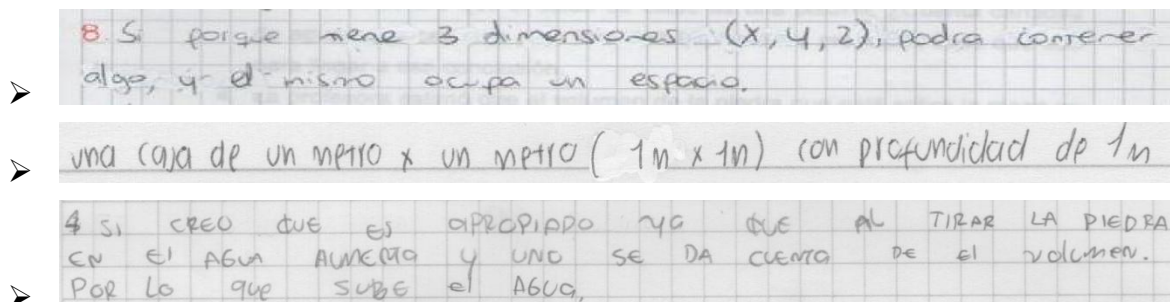 8. Si porque tiene 3 dimensiones (x, y, z), podra contener
algo, y el mismo ocupa un espacio.
una caja de un metro x un metro (1m x 1m) con profundidad de 1m
4 SI CREO QUE ES APROPIADO YA QUE AL TIRAR LA PIEDRA
EN El AGUA AUMENTA Y UNO SE DA CUENTA DE El volumen.
POR LO QUE SUBE el AGUA.